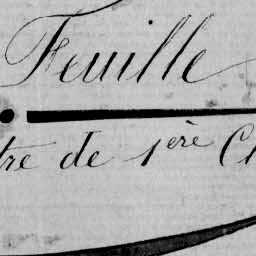 Feuille
tre de 1ère Cl